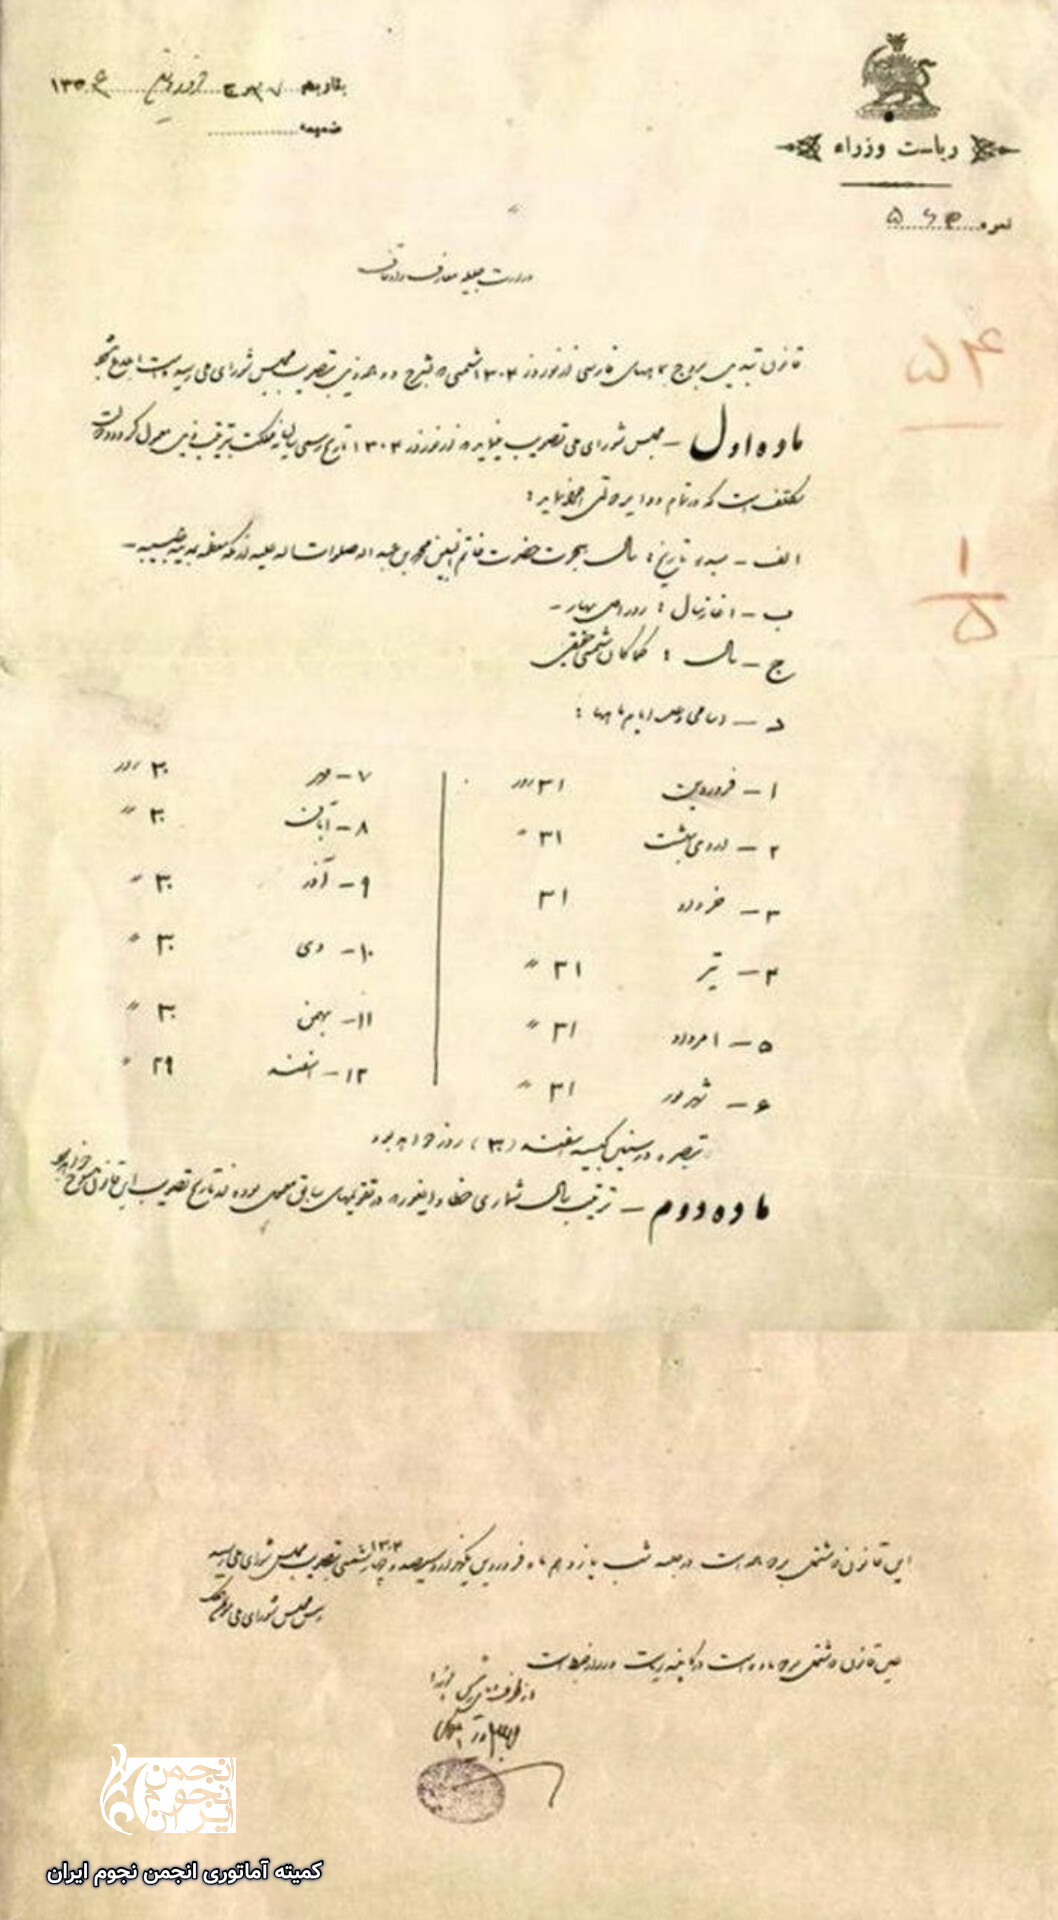 ریاست وزراء
بتاریخ ... ۱۳۰۴
ضمیمه
نمره ۵۶۳
وزارت جلیله معارف و اوقاف
۴۵
قانون تبدیل بروج بماههای فارسی از نوروز ۱۳۰۴ شمسی که بشرح ذیل بتصویب مجلس شورای ملی رسیده است ابلاغ میشود
ماده اول – مجلس شورای ملی تصویب مینماید که از نوروز ۱۳۰۴ تاریخ رسمی سالیانه مملکت بترتیب ذیل معمول گردد و دولت
مکلف است که در تمام دوایر دولتی اجرا نماید :
الف – مبدء تاریخ : سال هجرت حضرت خاتم النبیین محمد بن عبد اله صلوات اله علیه از مکه معظمه بمدینه طیبه –
۱
۵
ب – آغاز سال : روز اول بهار –
ج – سال : کماکان شمسی حقیقی
د – اسامی و عدد ایام ماهها :
۱ – فروردین ۳۱ روز
۲ – اردیبهشت ۳۱ "
۳ – خرداد ۳۱
۴ – تیر ۳۱ "
۵ – امرداد ۳۱ "
۶ – شهریور ۳۱ "
۷ – مهر ۳۰ روز
۸ – آبان ۳۰ "
۹ – آذر ۳۰ "
۱۰ – دی ۳۰ "
۱۱ – بهمن ۳۰ "
۱۲ – اسفند ۲۹ "
تبصره در سنین کبیسه اسفند (۳۰) روز خواهد بود
ماده دوم – ترتیب سال شماری ختا و ایغور که در تقویمهای سابق معمول بوده از تاریخ تصویب این قانون منسوخ خواهد بود
این قانون که مشتمل بر دو ماده است در جلسه شب یازدهم ماه فروردین یکهزار و سیصد و چهار ۱۳۰۴ شمسی بتصویب مجلس شورای ملی رسید
رئیس مجلس شورای ملی
اصل قانون که مشتمل بر دو ماده است در کابینه ریاست وزراء ضبط است
از طرف
انجمن
نجوم
ایران
کمیته آماتوری انجمن نجوم ایران